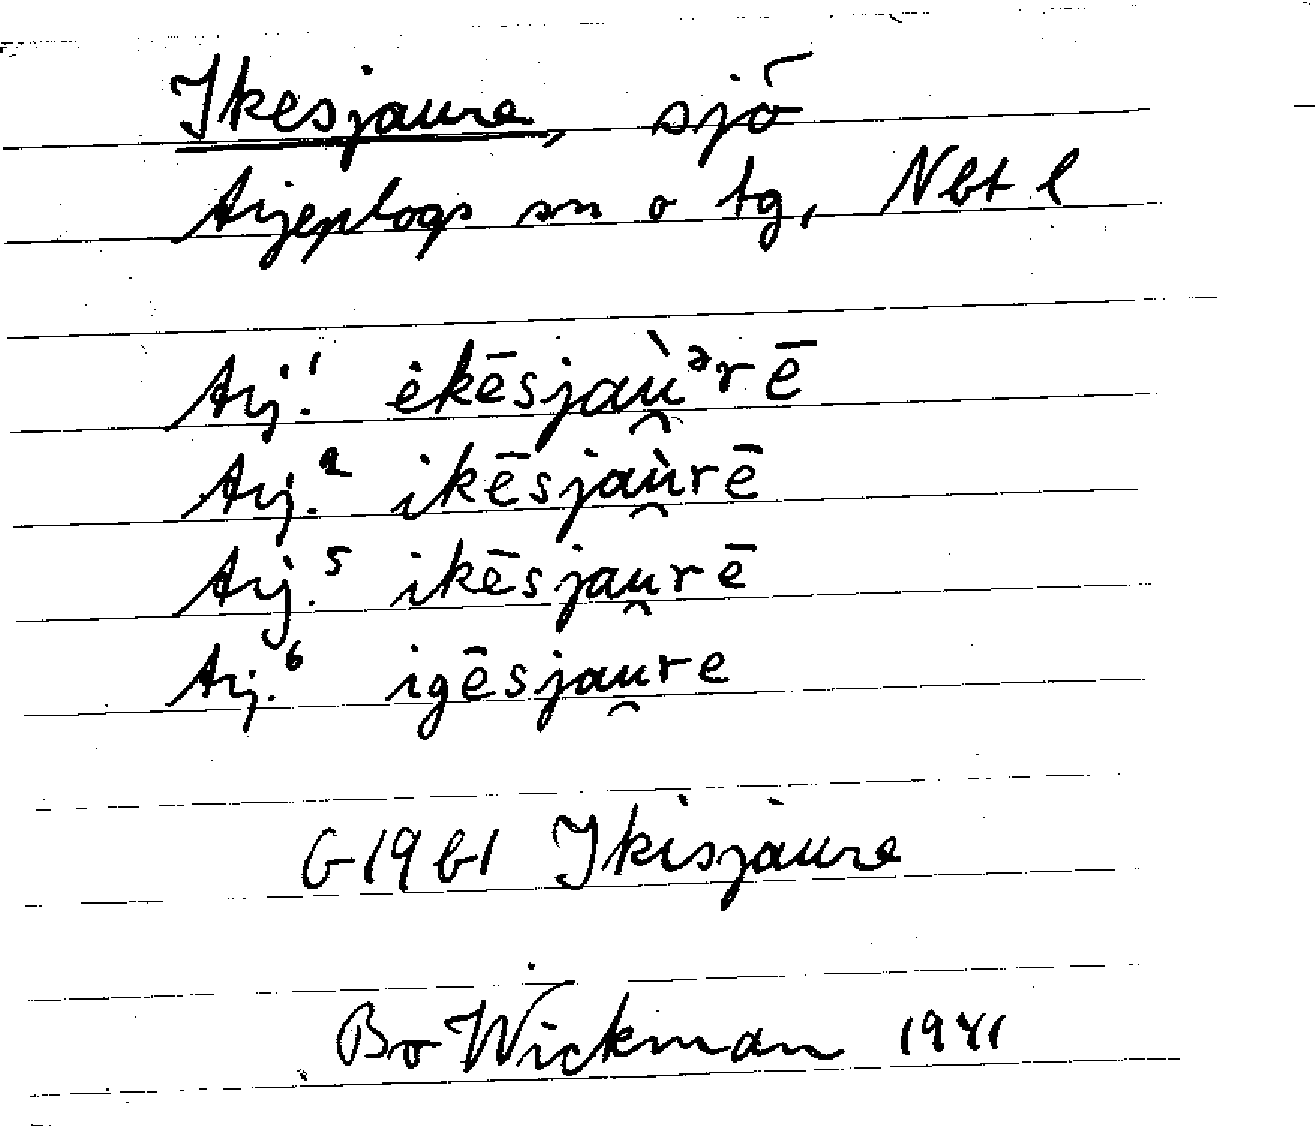 Ikesjaure, sjö
Arjeplogs sn o tg, Nbt l
Arj.¹ ėkēsjaù̯ᵊrē
Arj.² ikēsjaù̯rē
Arj.⁵ ikēsjau̯rē
Arj.⁶ igēsjau̯re
G1961 Ikisjaure
Bo Wickman 1941